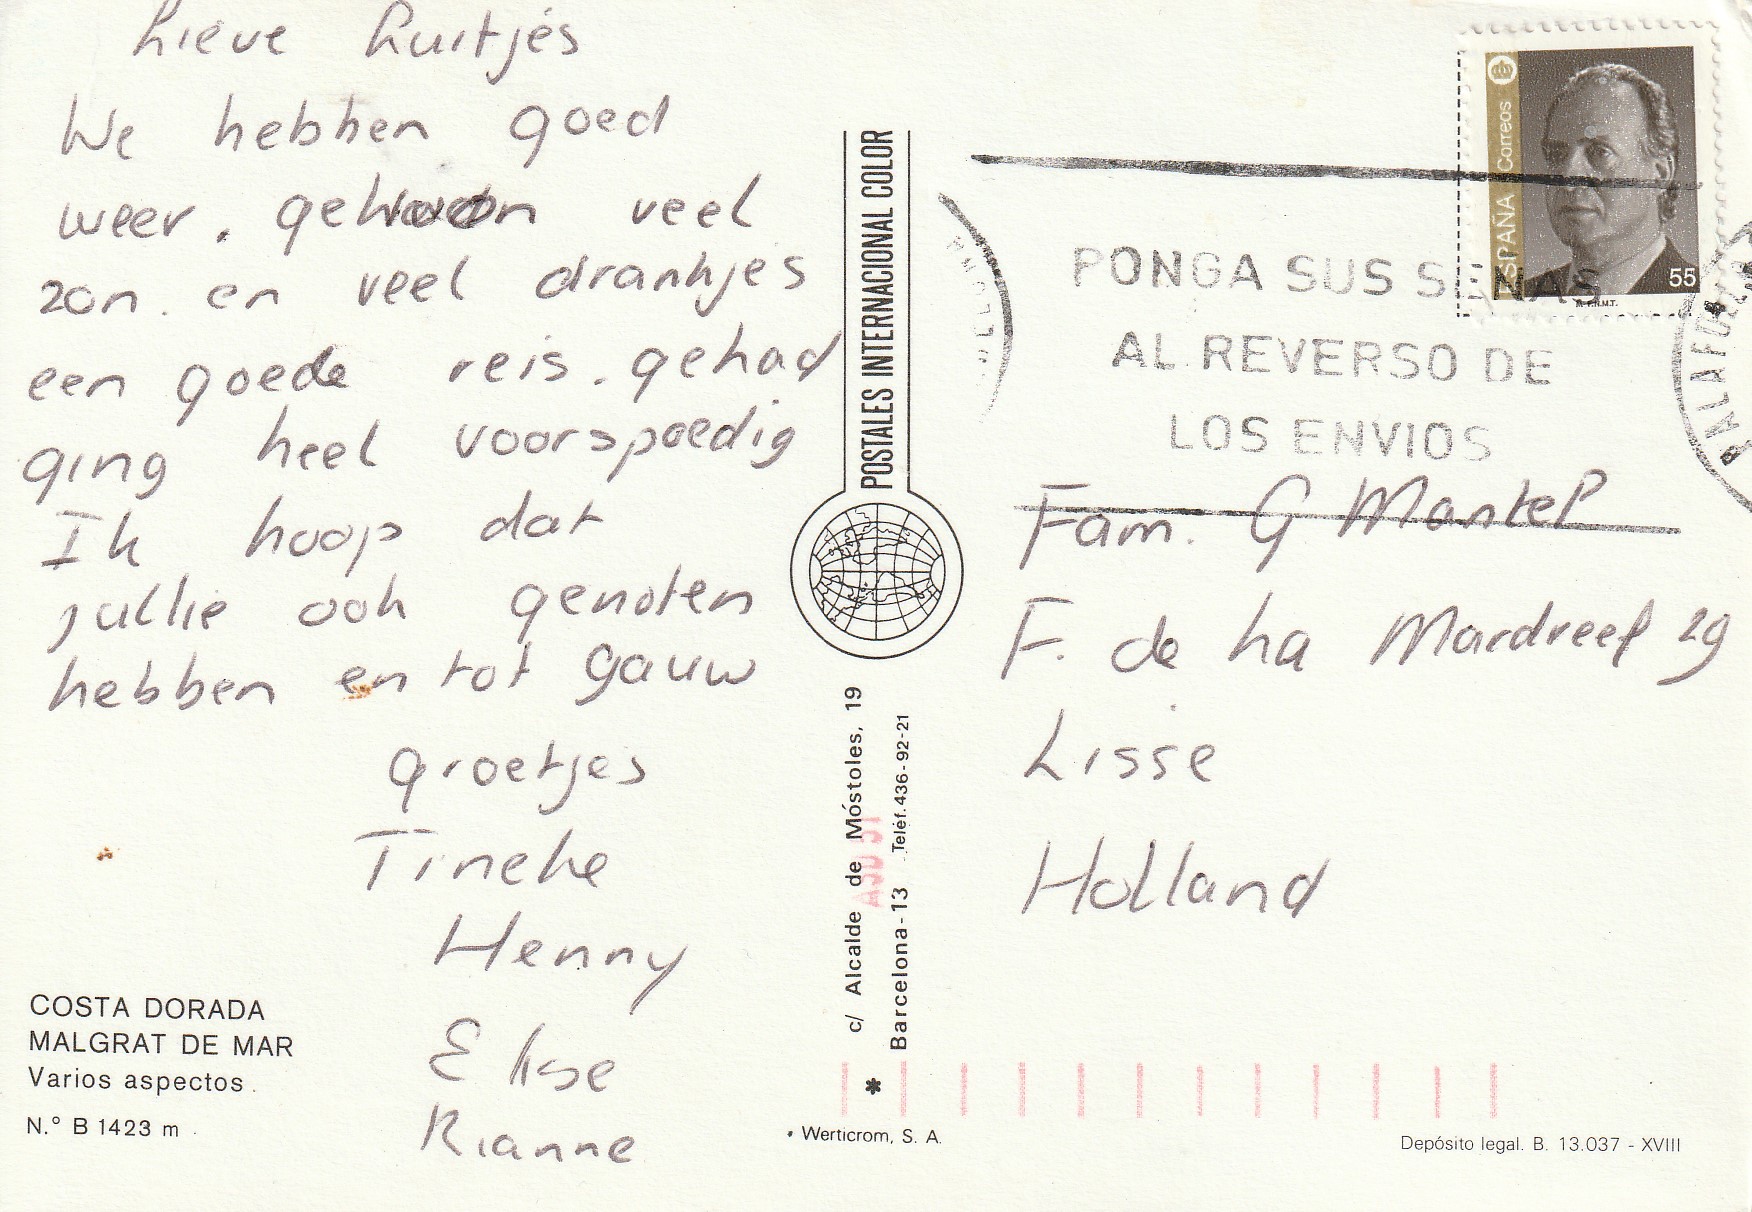 Lieve Luitjes
We hebben goed
weer. gewoon veel
zon. en veel drankjes
een goede reis. gehad
ging heel voorspoedig
Ik hoop dat
jullie ook genoten
hebben en tot gauw
groetjes
Tineke
Henny
Elise
Rianne
COSTA DORADA
MALGRAT DE MAR
Varios aspectos.
N.° B 1423 m
POSTALES INTERNACIONAL COLOR
c/ Alcalde de Móstoles, 19
Barcelona-13 Teléf. 436-92-21
*
• Werticrom, S. A.
ESPAÑA Correos
55
F.N.M.T.
PONGA SUS SEÑAS
AL REVERSO DE
LOS ENVIOS
Fam. G Mantel
F. de ha Mardreef 29
Lisse
Holland
Depósito legal. B. 13.037 - XVIII